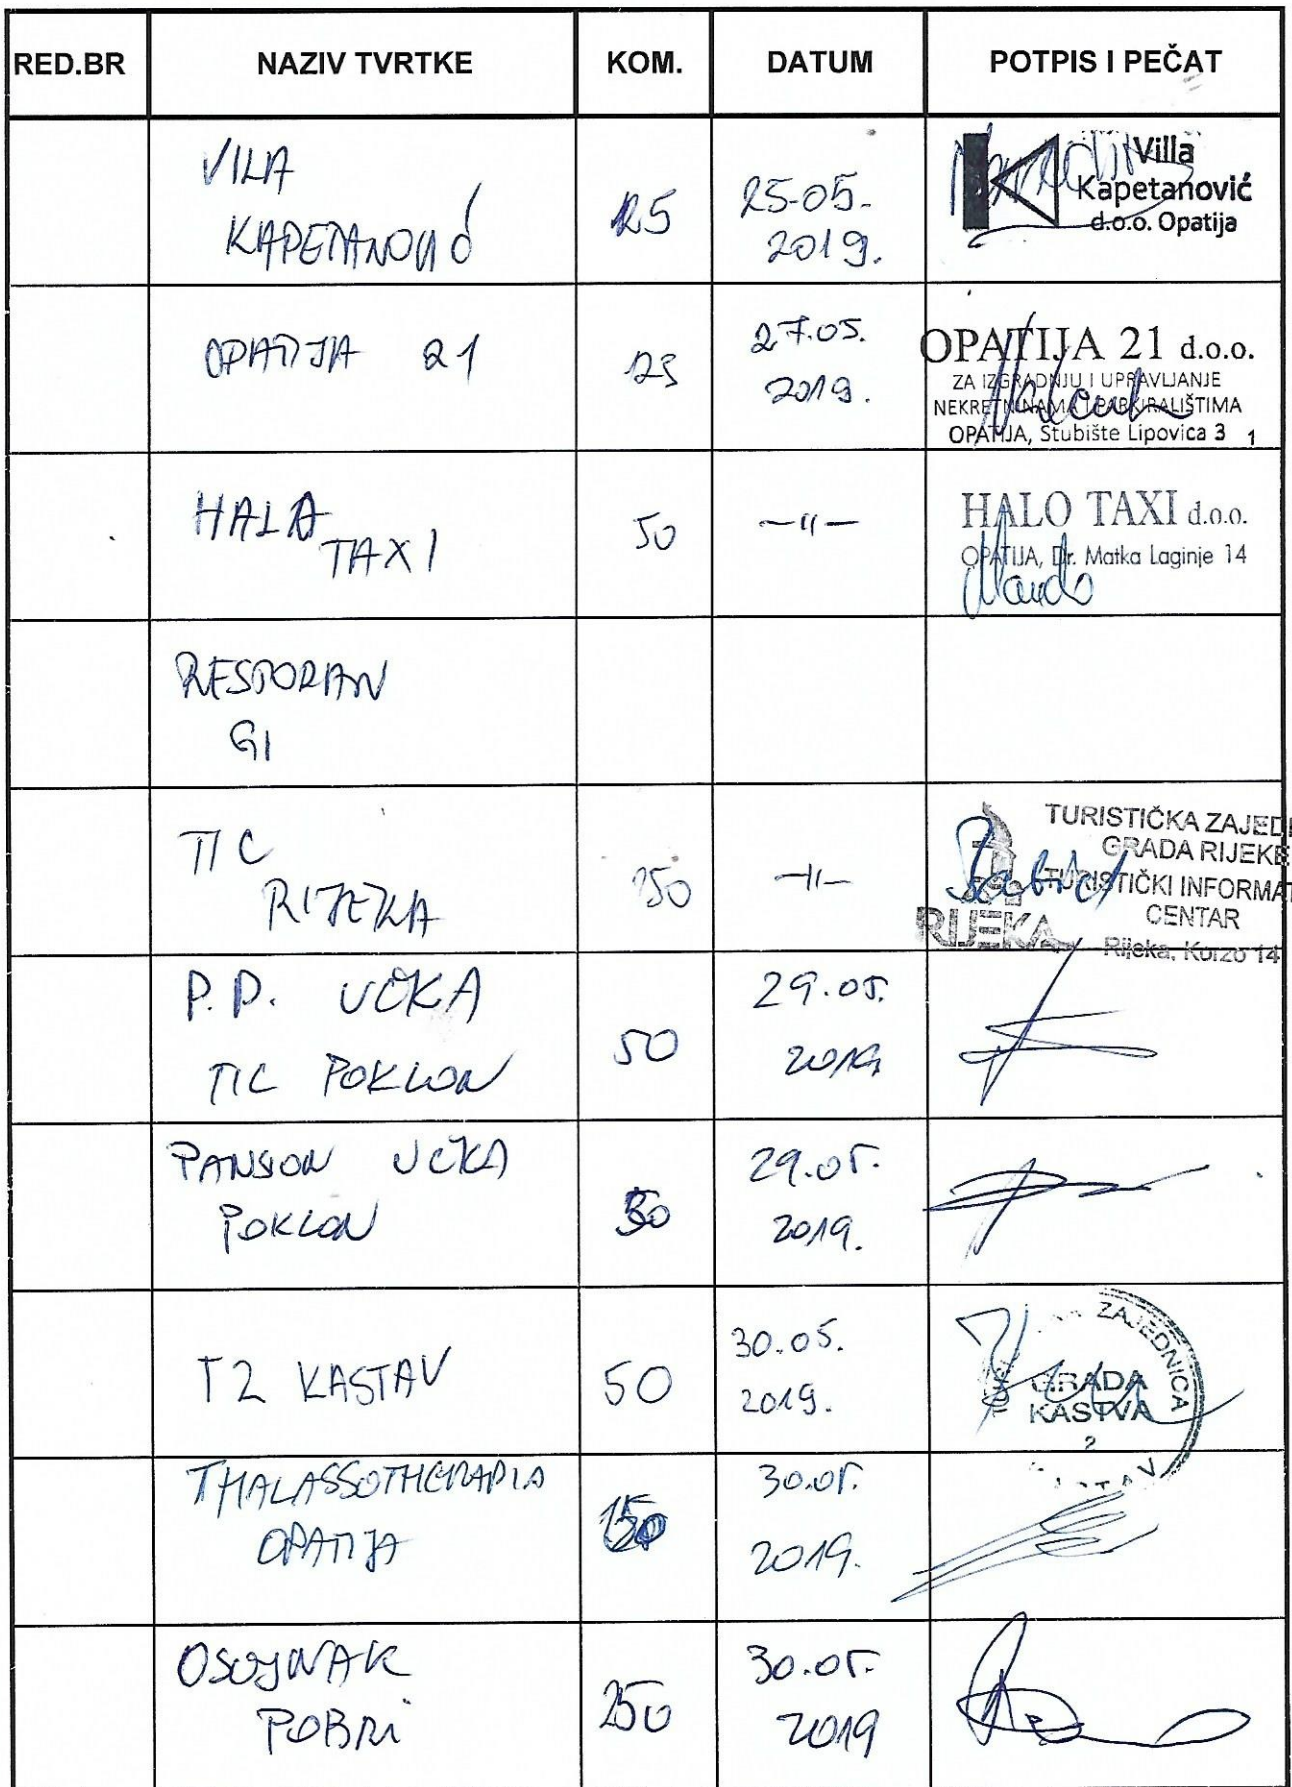 RED.BR NAZIV TVRTKE KOM. DATUM POTPIS I PEČAT
VILA
KAPETANOVIĆ
25-05.
2019.
Villa
Kapetanović
d.o.o. Opatija
OPATIJA 21
25
27.05.
2019.
OPATIJA 21 d.o.o.
ZA IZGRADNJU I UPRAVLJANJE
NEKRETNINAMA I PARKIRALIŠTIMA
OPATIJA, Stubište Lipovica 3 1
HALA
TAXI
50
—"—
HALO TAXI d.o.o.
OPATIJA, Dr. Matka Laginje 14
RESTORAN
GI
TIC
RIJEKA
—"—
TURISTIČKA ZAJED
GRADA RIJEKE
TURISTIČKI INFORMAT
CENTAR
RIJEKA
Rijeka, Korzo 14
P.P. UČKA
TIC POKLON
50
29.05.
2019
PANSION UČKA
POKLON
29.05.
2019.
TZ KASTAV
50
30.05.
2019.
ZAJEDNICA
GRADA
KASTVA
2
THALASSOTHERAPIA
OPATIJA
30.05.
2019.
OSOJNAK
POBRI
30.05.
2019